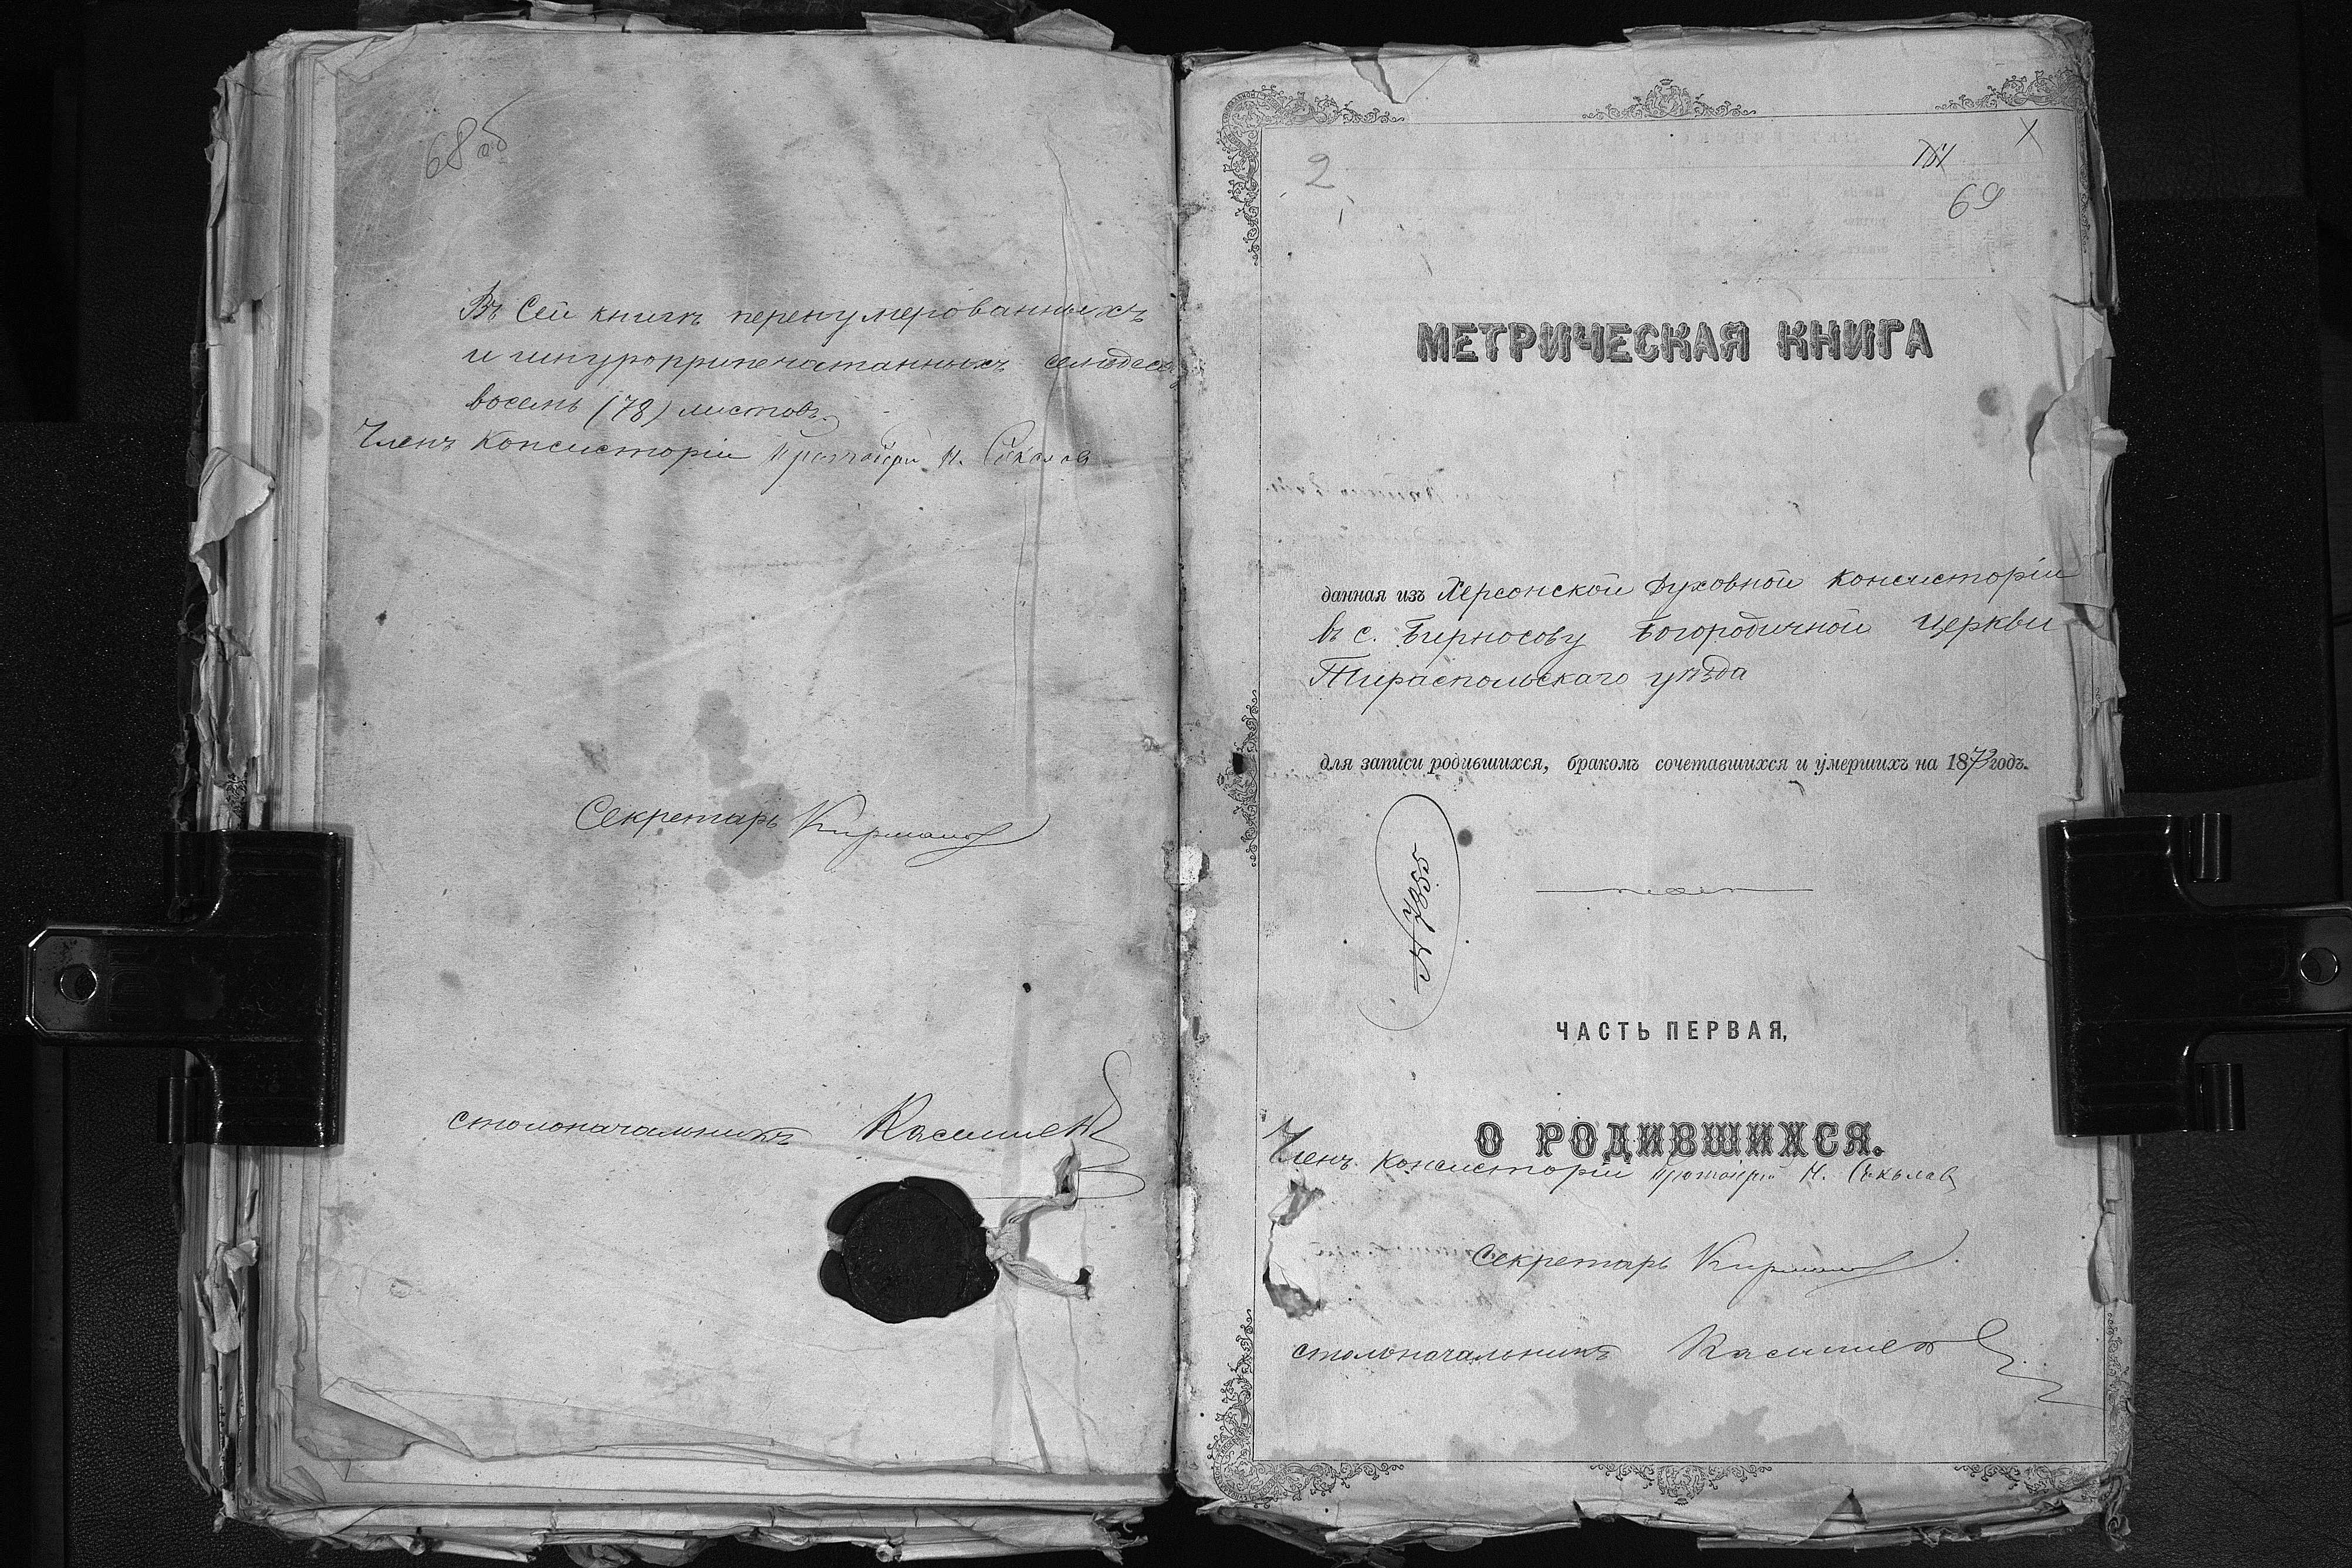 68 об
Въ сей книгѣ перенумерованныхъ
и шнуроприпечатанныхъ семьдесятъ
восемь (78) листовъ.
Членъ Консисторіи Протоіерей Н. Соколовъ
Секретарь
столоначальникъ
2
69
МЕТРИЧЕСКАЯ КНИГА
данная изъ Херсонской Духовной Консисторіи
въ с. Бирносову Богородичной церкви
Тираспольскаго уѣзда
для записи родившихся, бракомъ сочетавшихся и умершихъ на 1872 годъ.
№ 7855
ЧАСТЬ ПЕРВАЯ,
О РОДИВШИХСЯ.
Членъ Консисторіи Протоіерей Н. Соколовъ
Секретарь
столоначальникъ